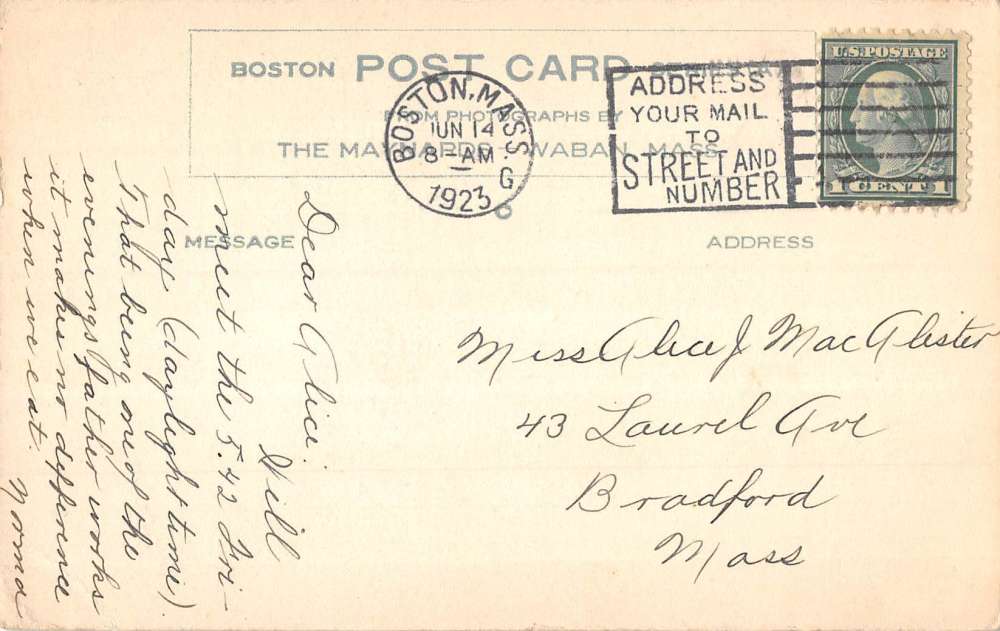 BOSTON POST CARD
FROM PHOTOGRAPHS BY
THE MAYNARDS WABAN, MASS
BOSTON, MASS.
JUN 14
8-AM
1923
G
ADDRESS
YOUR MAIL
TO
STREET AND
NUMBER
U.S. POSTAGE
1 CENT 1
6
MESSAGE
ADDRESS
Dear Alice:
Will
meet the 5.42 Fri-
day (daylight time).
That being one of the
evenings father works
it makes no difference
when we eat.
Norma
Miss Alice J MacAlister
43 Laurel Ave
Bradford
Mass